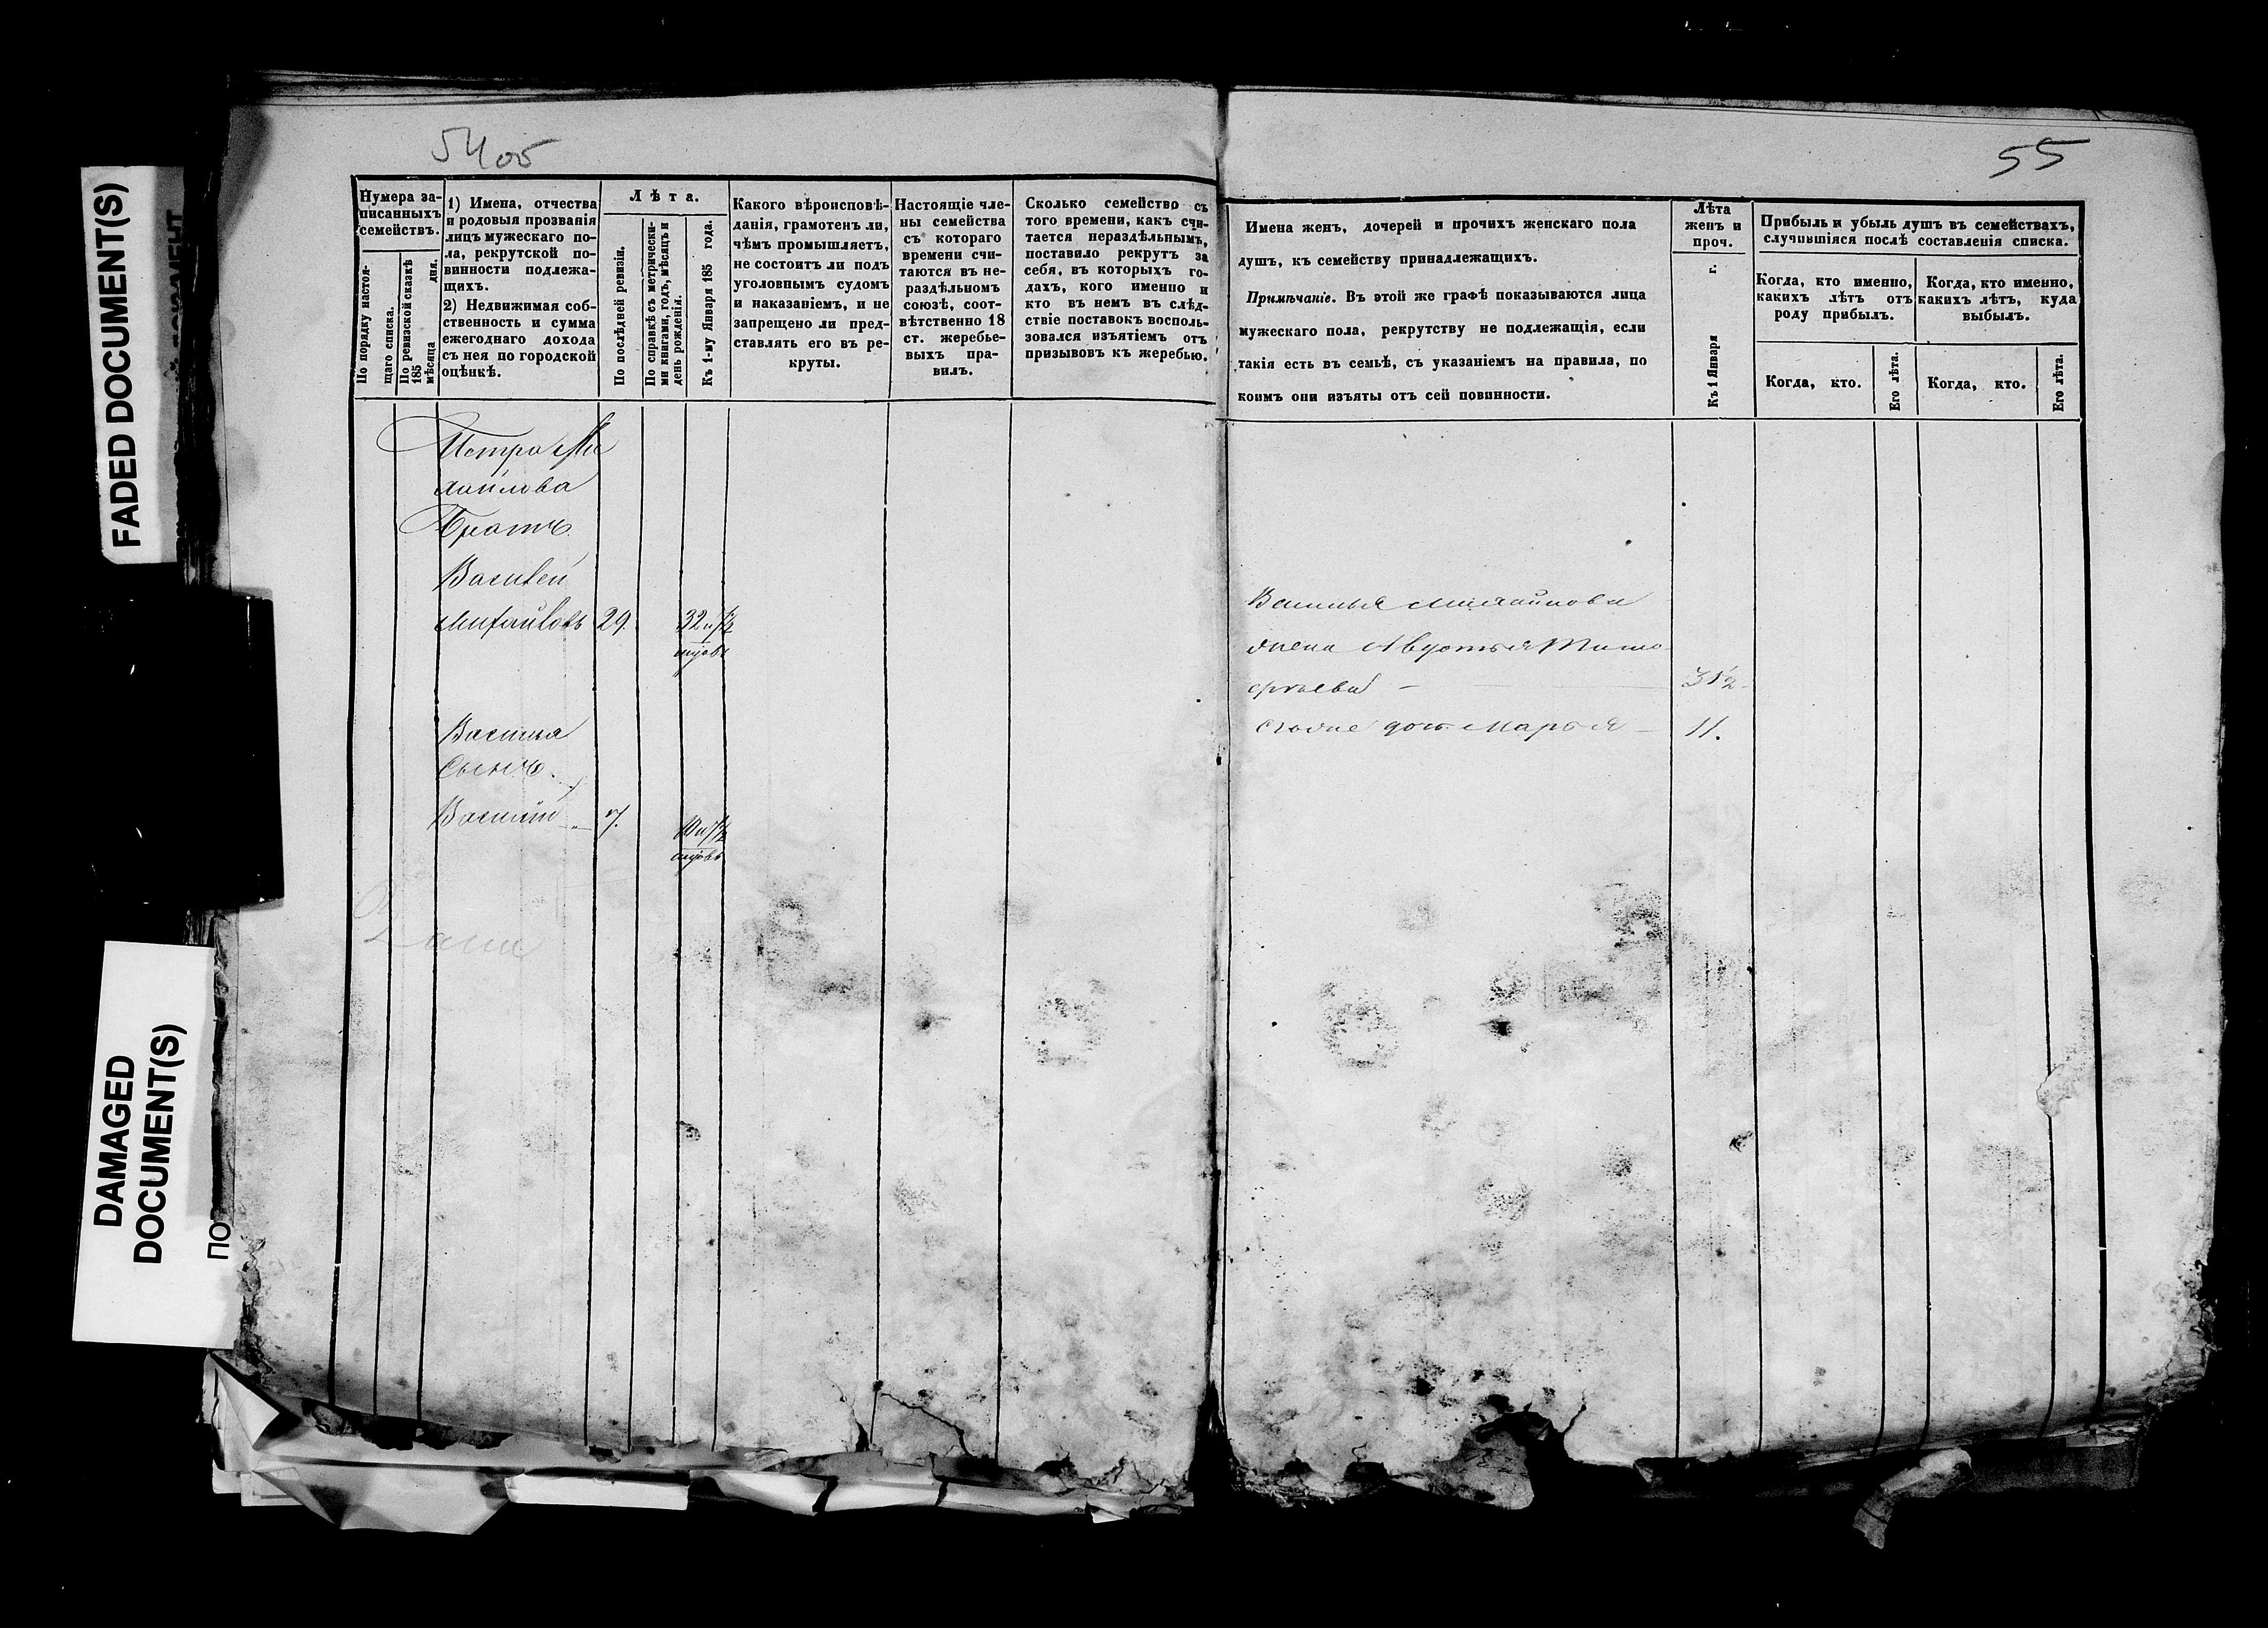 FADED DOCUMENT(S)
DAMAGED
DOCUMENT(S)
ПО
54 об
55
Нумера за-
писанныхъ
семействъ.
По порядку настоя-
щаго списка.
По ревизской сказкѣ
185 дня.
мѣсяца
1) Имена, отчества
и родовыя прозванія
лицъ мужескаго по-
ла, рекрутской по-
винности подлежа-
щихъ.
2) Недвижимая соб-
ственность и сумма
ежегоднаго дохода
съ нея по городской
оцѣнкѣ.
Лѣта.
По послѣдней ревизіи.
По справкѣ съ метрически-
ми книгами, годъ, мѣсяцъ и
день рожденія.
Къ 1-му Января 185 года.
Какого вѣроисповѣ-
данія, грамотенъ ли,
чѣмъ промышляетъ,
не состоитъ ли подъ
уголовнымъ судомъ
и наказаніемъ, и не
запрещено ли пред-
ставлять его въ ре-
круты.
Настоящіе чле-
ны семейства
съ котораго
времени счи-
таются въ не-
раздѣльномъ
союзѣ, соот-
вѣтственно 18
ст. жеребье-
выхъ пра-
вилъ.
Сколько семейство съ
того времени, какъ счи-
тается нераздѣльнымъ,
поставило рекрутъ за
себя, въ которыхъ го-
дахъ, кого именно и
кто въ немъ въ слѣд-
ствіе поставокъ восполь-
зовался изъятіемъ отъ
призывовъ къ жеребью.
Имена женъ, дочерей и прочихъ женскаго пола
душъ, къ семейству принадлежащихъ.
Примѣчаніе. Въ этой же графѣ показываются лица
мужескаго пола, рекрутству не подлежащія, если
такія есть въ семьѣ, съ указаніемъ на правила, по
коимъ они изъяты отъ сей повинности.
Лѣта
женъ и
проч.
Къ 1 Января г.
Прибыль и убыль душъ въ семействахъ,
случившіяся послѣ составленія списка.
Когда, кто именно,
какихъ лѣтъ отъ
роду прибылъ.
Когда, кто именно,
какихъ лѣтъ, куда
выбылъ.
Когда, кто.
Его лѣта.
Когда, кто.
Его лѣта.
Петра Ми
хайлова
Братъ
Василей
Михайловъ 29. 32 и 7/12
Василья
Сынъ
Василий 7. 10 и 7/12
Василья Михайлова
жена Авдотья Тимо
фѣева 31½
Ихъ дочь Марья 11.